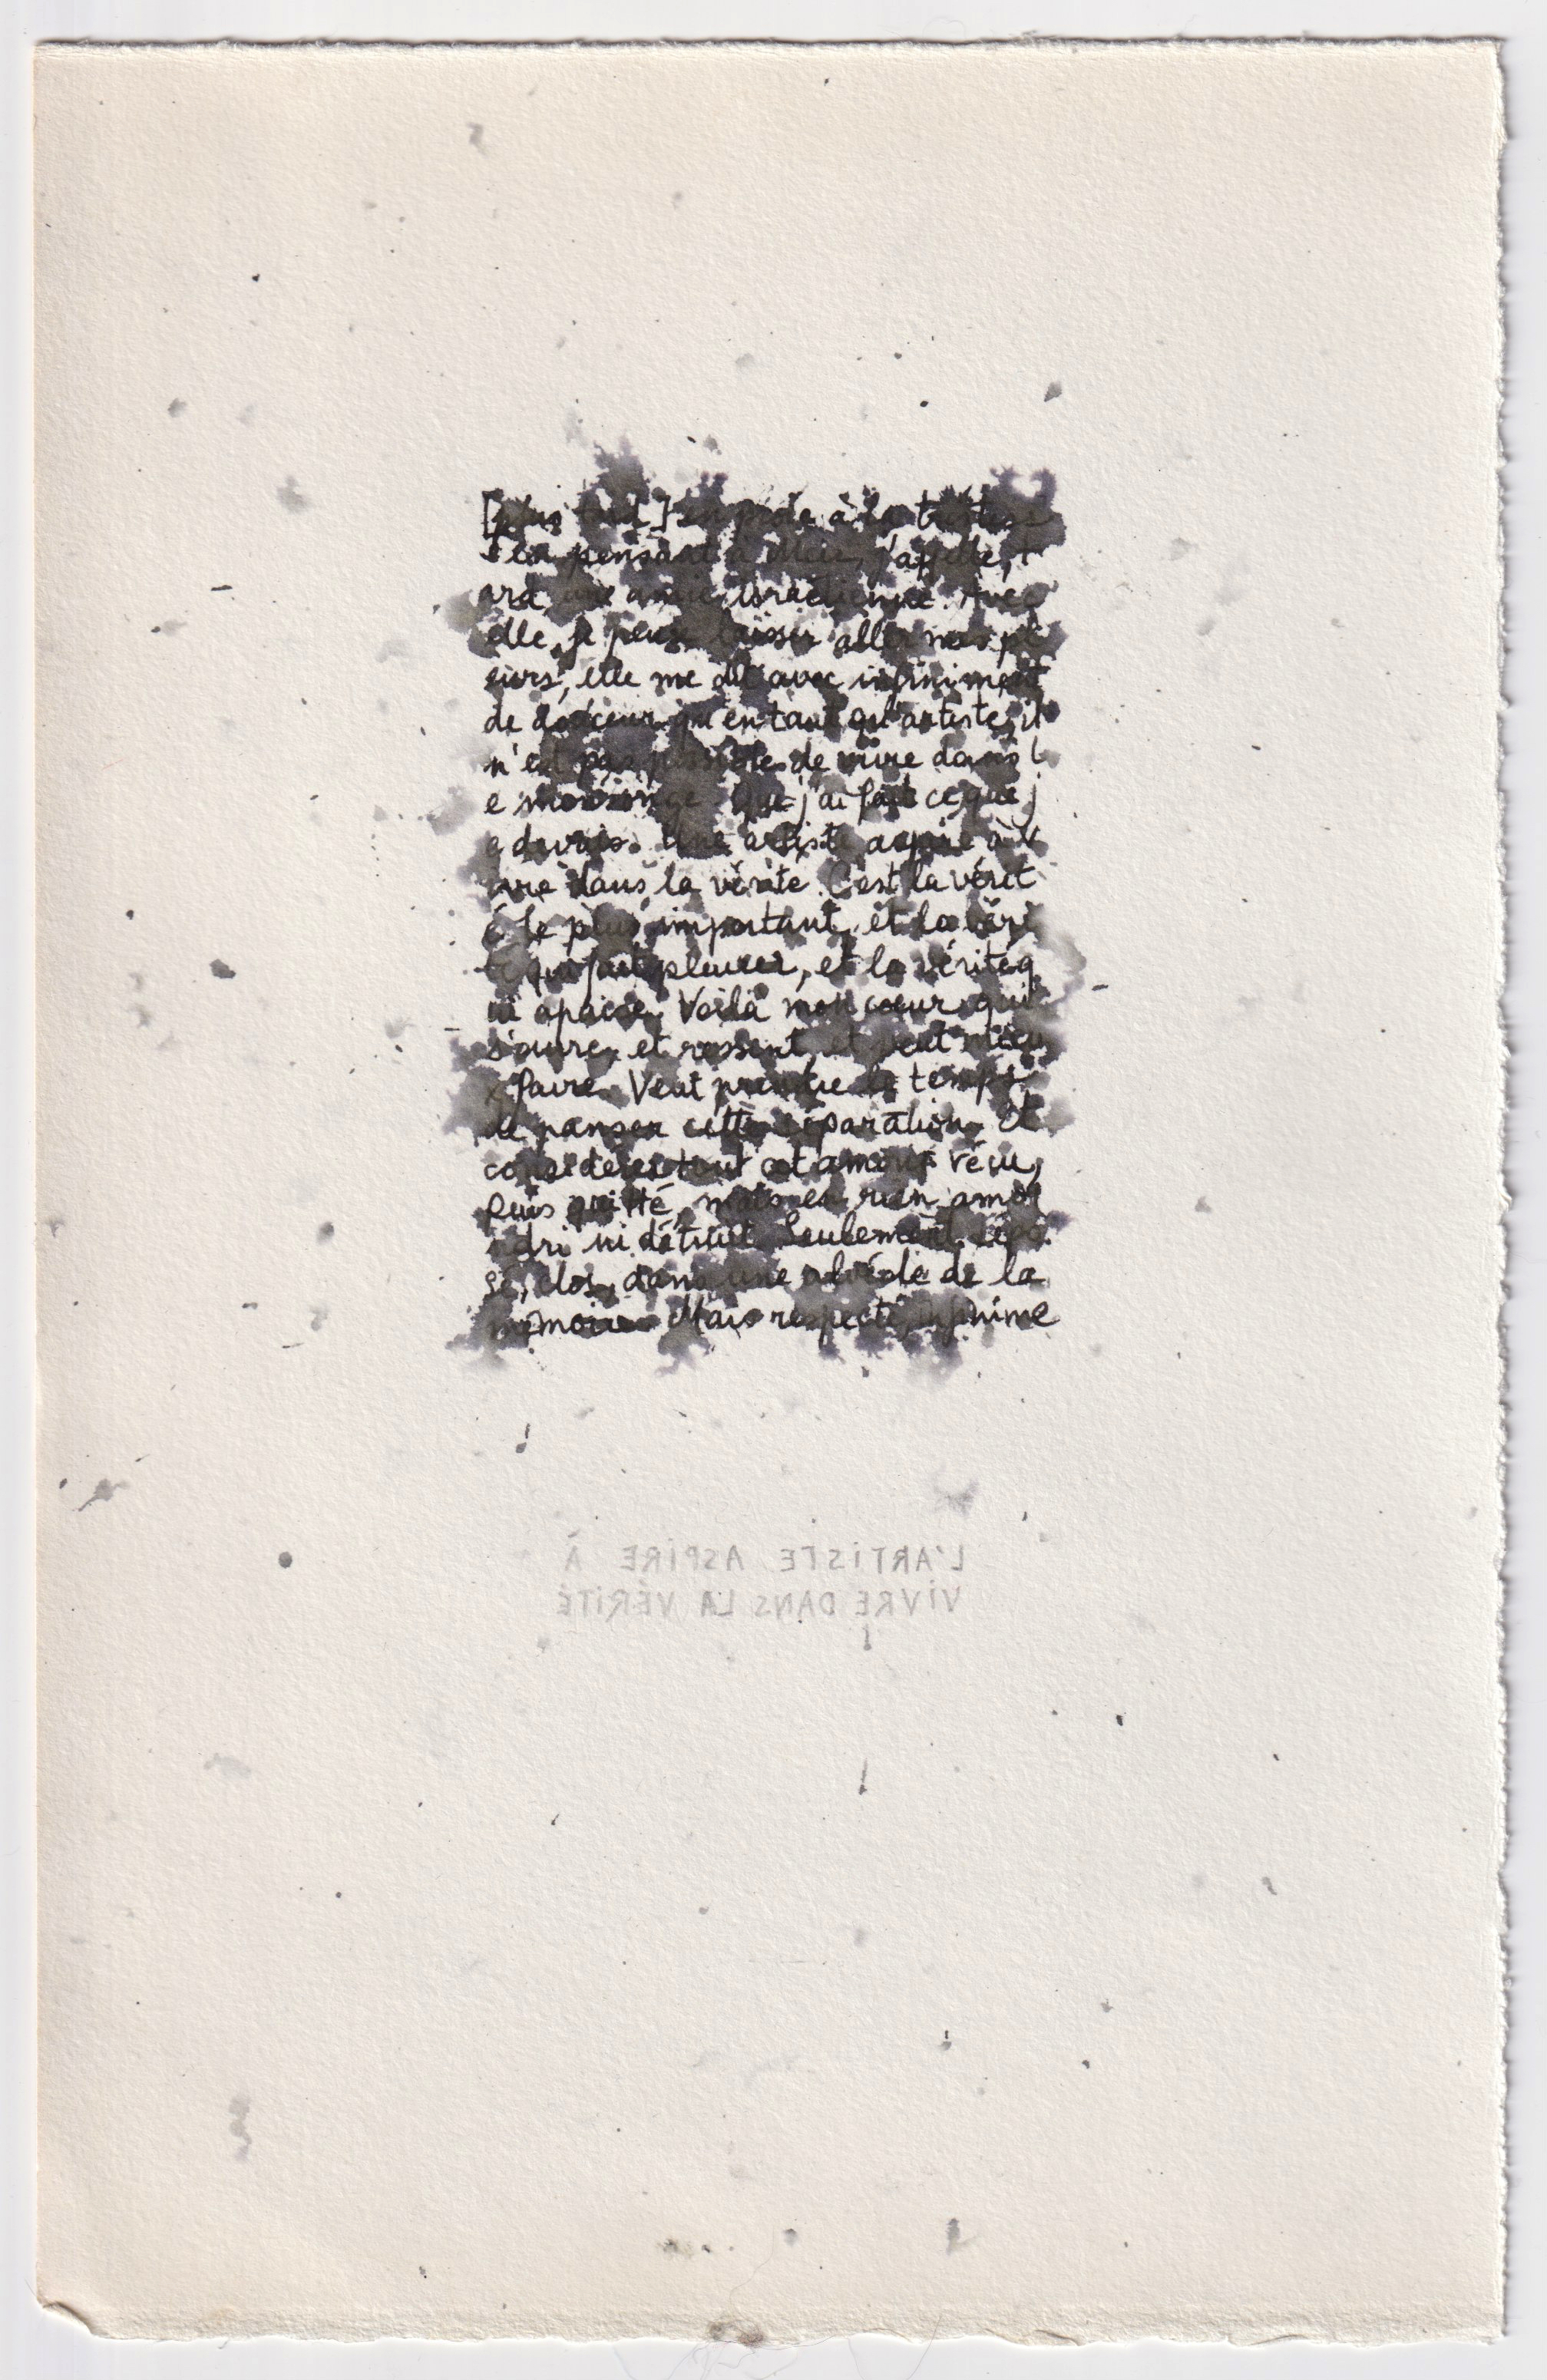 [plus tard] en proie à la tristess
e en pensant à          j'appelle, t
ard, une amie israélienne. Avec
elle, je peux laisser aller mes pl
eurs, elle me dit avec infiniment
de douceur qu'en tant qu'artiste, il
n'est pas possible de vivre dans l
e mensonge. Que j'ai fait ce que j
e devais. Une artiste aspire à v
ivre dans la vérité. C'est la vérit
é le plus important, et la véri
té qui fait pleurer, et la vérité q
ui apaise. Voilà mon cœur qui
s'ouvre, et ressent, et veut mieu
x faire. Veut prendre le temps
de panser cette séparation. Et
considérer tout cet amour vécu,
puis quitté, mais en rien amoi
ndri ni détruit. Seulement dépo
sé, clos, dans une alvéole de la
mémoire. Mais respecté, infinime
L'ARTISTE ASPIRE À
VIVRE DANS LA VÉRITÉ